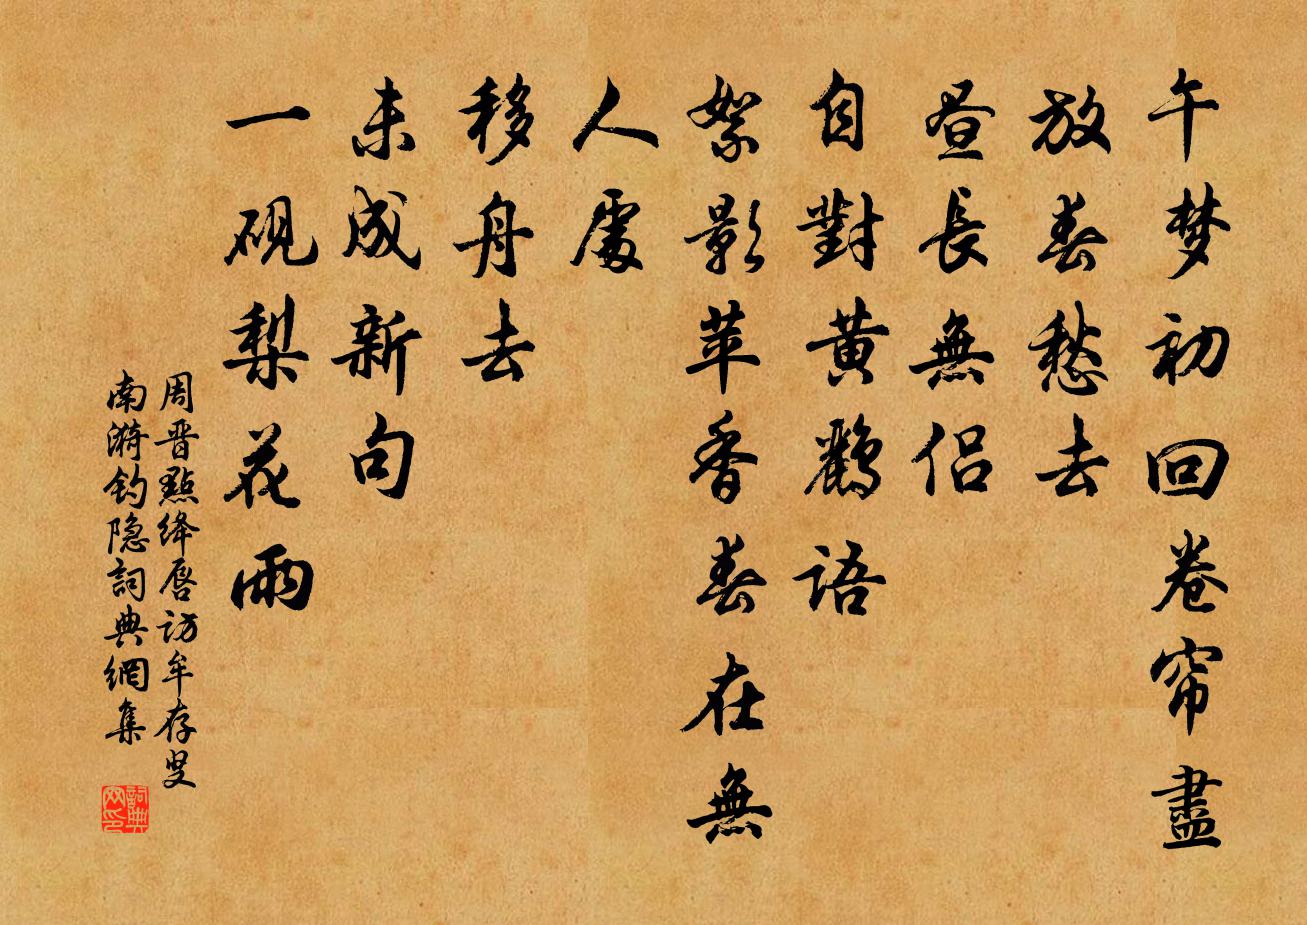 午梦初回卷帘盡
放春愁去
昼長無侣
自對黄鸝語
絮影苹香春在無
人處
移舟去
未成新句
一硯梨花雨
周晋點绛唇访牟存叟
南漪钓隐詞典網集
詞典网印